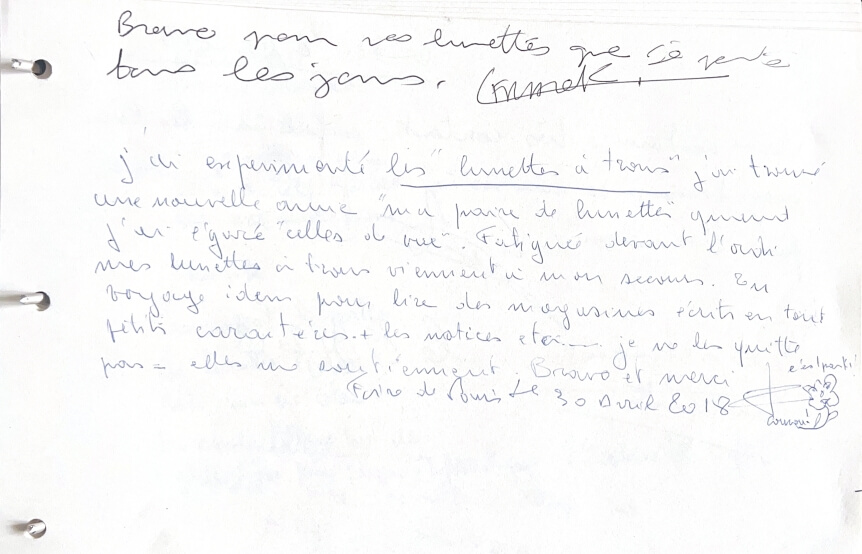 Bravo pour vos lunettes que je porte
tous les jours.
j'ai experimenté les "lunettes à trous" j'ai trouvé
une nouvelle amie "ma paire de lunettes" quand
j'ai égaré "celles de vue". Fatiguée devant l'ordi
mes lunettes à trous viennent à mon secours. En
voyage idem pour lire des magasines écrits en tout
petits caractères + les notices etc.... je ne les quitte
pas = elles me soutiennent. Bravo et merci
c'est parti!
Foire de Paris le 30 Avril 2018